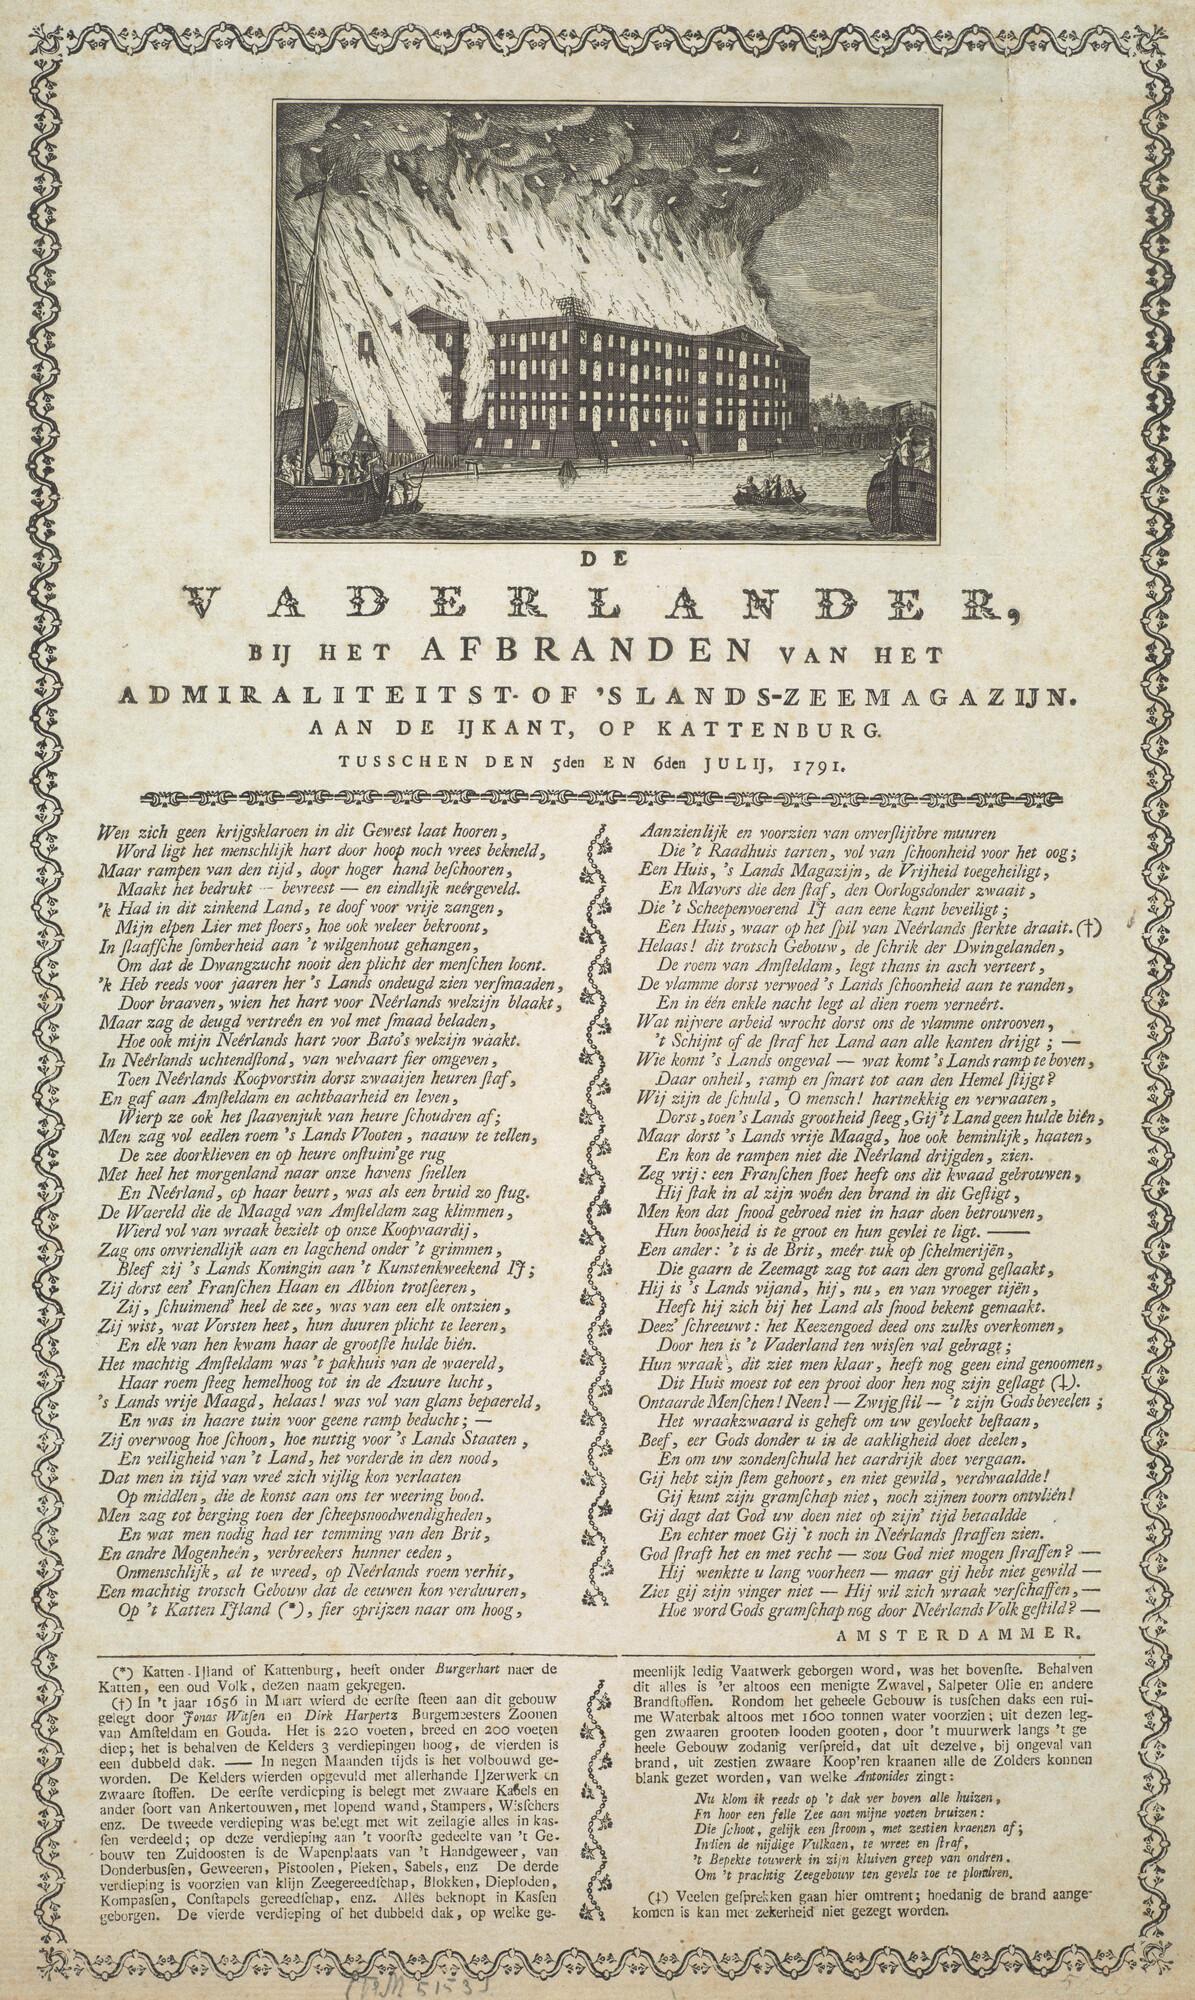 DE
VADERLANDER,
BIJ HET AFBRANDEN VAN HET
ADMIRALITEITST- OF 'SLANDS-ZEEMAGAZIJN.
AAN DE IJKANT, OP KATTENBURG.
TUSSCHEN DEN 5den EN 6den JULIJ, 1791.
Wen zich geen krijgsklaroen in dit Gewest laat hooren,
Word ligt het menschlijk hart door hoop noch vrees bekneld,
Maar rampen van den tijd, door hoger hand beschooren,
Maakt het bedrukt — bevreest — en eindlijk neêrgeveld.
'k Had in dit zinkend Land, te doof voor vrije zangen,
Mijn elpen Lier met floers, hoe ook weleer bekroont,
In slaafsche somberheid aan 't wilgenhout gehangen,
Om dat de Dwangzucht nooit den plicht der menschen loont.
'k Heb reeds voor jaaren her 's Lands ondeugd zien versmaaden,
Door braaven, wien het hart voor Neêrlands welzijn blaakt,
Maar zag de deugd vertreên en vol met smaad beladen,
Hoe ook mijn Neêrlands hart voor Bato's welzijn waakt.
In Neêrlands uchtendstond, van welvaart fier omgeven,
Toen Neêrlands Koopvorstin dorst zwaaijen heuren staf,
En gaf aan Amsteldam en achtbaarheid en leven,
Wierp ze ook het slaavenjuk van heure schoudren af;
Men zag vol eedlen roem 's Lands Vlooten, naauw te tellen,
De zee doorklieven en op heure onstuim'ge rug
Met heel het morgenland naar onze havens snellen
En Neêrland, op haar beurt, was als een bruid zo flug.
De Waereld die de Maagd van Amsteldam zag klimmen,
Wierd vol van wraak bezielt op onze Koopvaardij,
Zag ons onvriendlijk aan en lagchend onder 't grimmen,
Bleef zij 's Lands Koningin aan 't Kunstenkweekend IJ;
Zij dorst een' Franschen Haan en Albion trotseeren,
Zij, schuimend' heel de zee, was van een elk ontzien,
Zij wist, wat Vorsten heet, hun duuren plicht te leeren,
En elk van hen kwam haar de grootste hulde biên.
Het machtig Amsteldam was 't pakhuis van de waereld,
Haar roem steeg hemelhoog tot in de Azuure lucht,
's Lands vrije Maagd, helaas! was vol van glans bepaereld,
En was in haare tuin voor geene ramp beducht; —
Zij overwoog hoe schoon, hoe nuttig voor 's Lands Staaten,
En veiligheid van 't Land, het vorderde in den nood,
Dat men in tijd van vreê zich vijlig kon verlaaten
Op middlen, die de konst aan ons ter weering bood.
Men zag tot berging toen der scheepsnoodwendigheden,
En wat men nodig had ter temming van den Brit,
En andre Mogenheên, verbreekers hunner eeden,
Onmenschlijk, al te wreed, op Neêrlands roem verhit,
Een machtig trotsch Gebouw dat de eeuwen kon verduuren,
Op 't Katten IJland (*), fier oprijzen naar om hoog,
Aanzienlijk en voorzien van onverslijtbre muuren
Die 't Raadhuis tarten, vol van schoonheid voor het oog;
Een Huis, 's Lands Magazijn, de Vrijheid toegeheiligt,
En Mavors die den staf, den Oorlogsdonder zwaait,
Die 't Scheepenvoerend IJ aan eene kant beveiligt;
Een Huis, waar op het spil van Neêrlands sterkte draait. (†)
Helaas! dit trotsch Gebouw, de schrik der Dwingelanden,
De roem van Amsteldam, legt thans in asch verteert,
De vlamme dorst verwoed 's Lands schoonheid aan te randen,
En in één enkle nacht legt al dien roem verneêrt.
Wat nijvere arbeid wrocht dorst ons de vlamme ontrooven,
't Schijnt of de straf het Land aan alle kanten drijgt; —
Wie komt 's Lands ongeval — wat komt 's Lands ramp te boven,
Daar onheil, ramp en smart tot aan den Hemel stijgt?
Wij zijn de schuld, O mensch! hartnekkig en verwaaten,
Dorst, toen 's Lands grootheid steeg, Gij 't Land geen hulde biên,
Maar dorst 's Lands vrije Maagd, hoe ook beminlijk, haaten,
En kon de rampen niet die Neêrland drijgden, zien.
Zeg vrij: een Franschen stoet heeft ons dit kwaad gebrouwen,
Hij stak in al zijn woên den brand in dit Gestigt,
Men kon dat snood gebroed niet in haar doen betrouwen,
Hun boosheid is te groot en hun gevlei te ligt. ——
Een ander: 't is de Brit, meêr tuk op schelmerijën,
Die gaarn de Zeemagt zag tot aan den grond geslaakt,
Hij is 's Lands vijand, hij, nu, en van vroeger tijën,
Heeft hij zich bij het Land als snood bekent gemaakt.
Deez' schreeuwt: het Keezengoed deed ons zulks overkomen,
Door hen is 't Vaderland ten wissen val gebragt;
Hun wraak, dit ziet men klaar, heeft nog geen eind genoomen,
Dit Huis moest tot een prooi door hen nog zijn geslagt (‡).
Ontaarde Menschen! Neen! — Zwijgstil — 't zijn Gods beveelen;
Het wraakzwaard is geheft om uw gevloekt bestaan,
Beef, eer Gods donder u in de aakligheid doet deelen,
En om uw zondenschuld het aardrijk doet vergaan.
Gij hebt zijn stem gehoort, en niet gewild, verdwaaldde!
Gij kunt zijn gramschap niet, noch zijnen toorn ontvliên!
Gij dagt dat God uw doen niet op zijn' tijd betaaldde
En echter moet Gij 't noch in Neêrlands straffen zien.
God straft het en met recht — zou God niet mogen straffen? —
Hij wenktte u lang voorheen — maar gij hebt niet gewild —
Ziet gij zijn vinger niet — Hij wil zich wraak verschaffen, —
Hoe word Gods gramschap nog door Neêrlands Volk gestild? —
AMSTERDAMMER.
(*) Katten-IJland of Kattenburg, heeft onder Burgerhart naer de
Katten, een oud Volk, dezen naam gekregen.
(†) In 't jaar 1656 in Maart wierd de eerste steen aan dit gebouw
gelegt door Jonas Witsen en Dirk Harpertz Burgemeesters Zoonen
van Amsteldam en Gouda. Het is 220 voeten, breed en 200 voeten
diep; het is behalven de Kelders 3 verdiepingen hoog, de vierden is
een dubbeld dak. —— In negen Maanden tijds is het volbouwd ge-
worden. De Kelders wierden opgevuld met allerhande IJzerwerk en
zwaare stoffen. De eerste verdieping is belegt met zwaare Kabels en
ander soort van Ankertouwen, met lopend wand, Stampers, Wisschers
enz. De tweede verdieping was belegt met wit zeilagie alles in kas-
sen verdeeld; op deze verdieping aan 't voorste gedeelte van 't Ge-
bouw ten Zuidoosten is de Wapenplaats van 't Handgeweer, van
Donderbussen, Geweeren, Pistoolen, Pieken, Sabels, enz De derde
verdieping is voorzien van klijn Zeegereedschap, Blokken, Dieploden,
Kompassen, Constapels gereedschap, enz. Alles beknopt in Kassen
geborgen. De vierde verdieping of het dubbeld dak, op welke ge-
meenlijk ledig Vaatwerk geborgen word, was het bovenste. Behalven
dit alles is 'er altoos een menigte Zwavel, Salpeter Olie en andere
Brandstoffen. Rondom het geheele Gebouw is tusschen daks een rui-
me Waterbak altoos met 1600 tonnen water voorzien; uit dezen leg-
gen zwaaren grooten looden gooten, door 't muurwerk langs 't ge
heele Gebouw zodanig verspreid, dat uit dezelve, bij ongeval van
brand, uit zestien zwaare Koop'ren kraanen alle de Zolders konnen
blank gezet worden, van welke Antonides zingt:
Nu klom ik reeds op 't dak ver boven alle huizen,
En hoor een felle Zee aan mijne voeten bruizen:
Die schoot, gelijk een stroom, met zestien kraenen af;
Indien de nijdige Vulkaen, te wreet en straf,
't Bepekte touwerk in zijn kluiven greep van ondren.
Om 't prachtig Zeegebouw ten gevels toe te plondren.
(‡) Veelen gesprekken gaan hier omtrent; hoedanig de brand aange-
komen is kan met zekerheid niet gezegt worden.